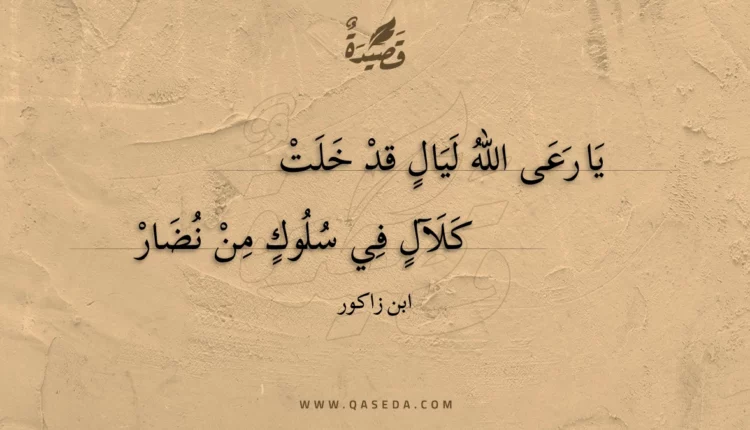 قَصِيدَةٌ
يَا رَعَى اللهُ لَيَالٍ قدْ خَلَتْ
كَلَآلٍ فِي سُلُوكٍ مِنْ نُضَارْ
ابن زاكور
WWW.QASEDA.COM